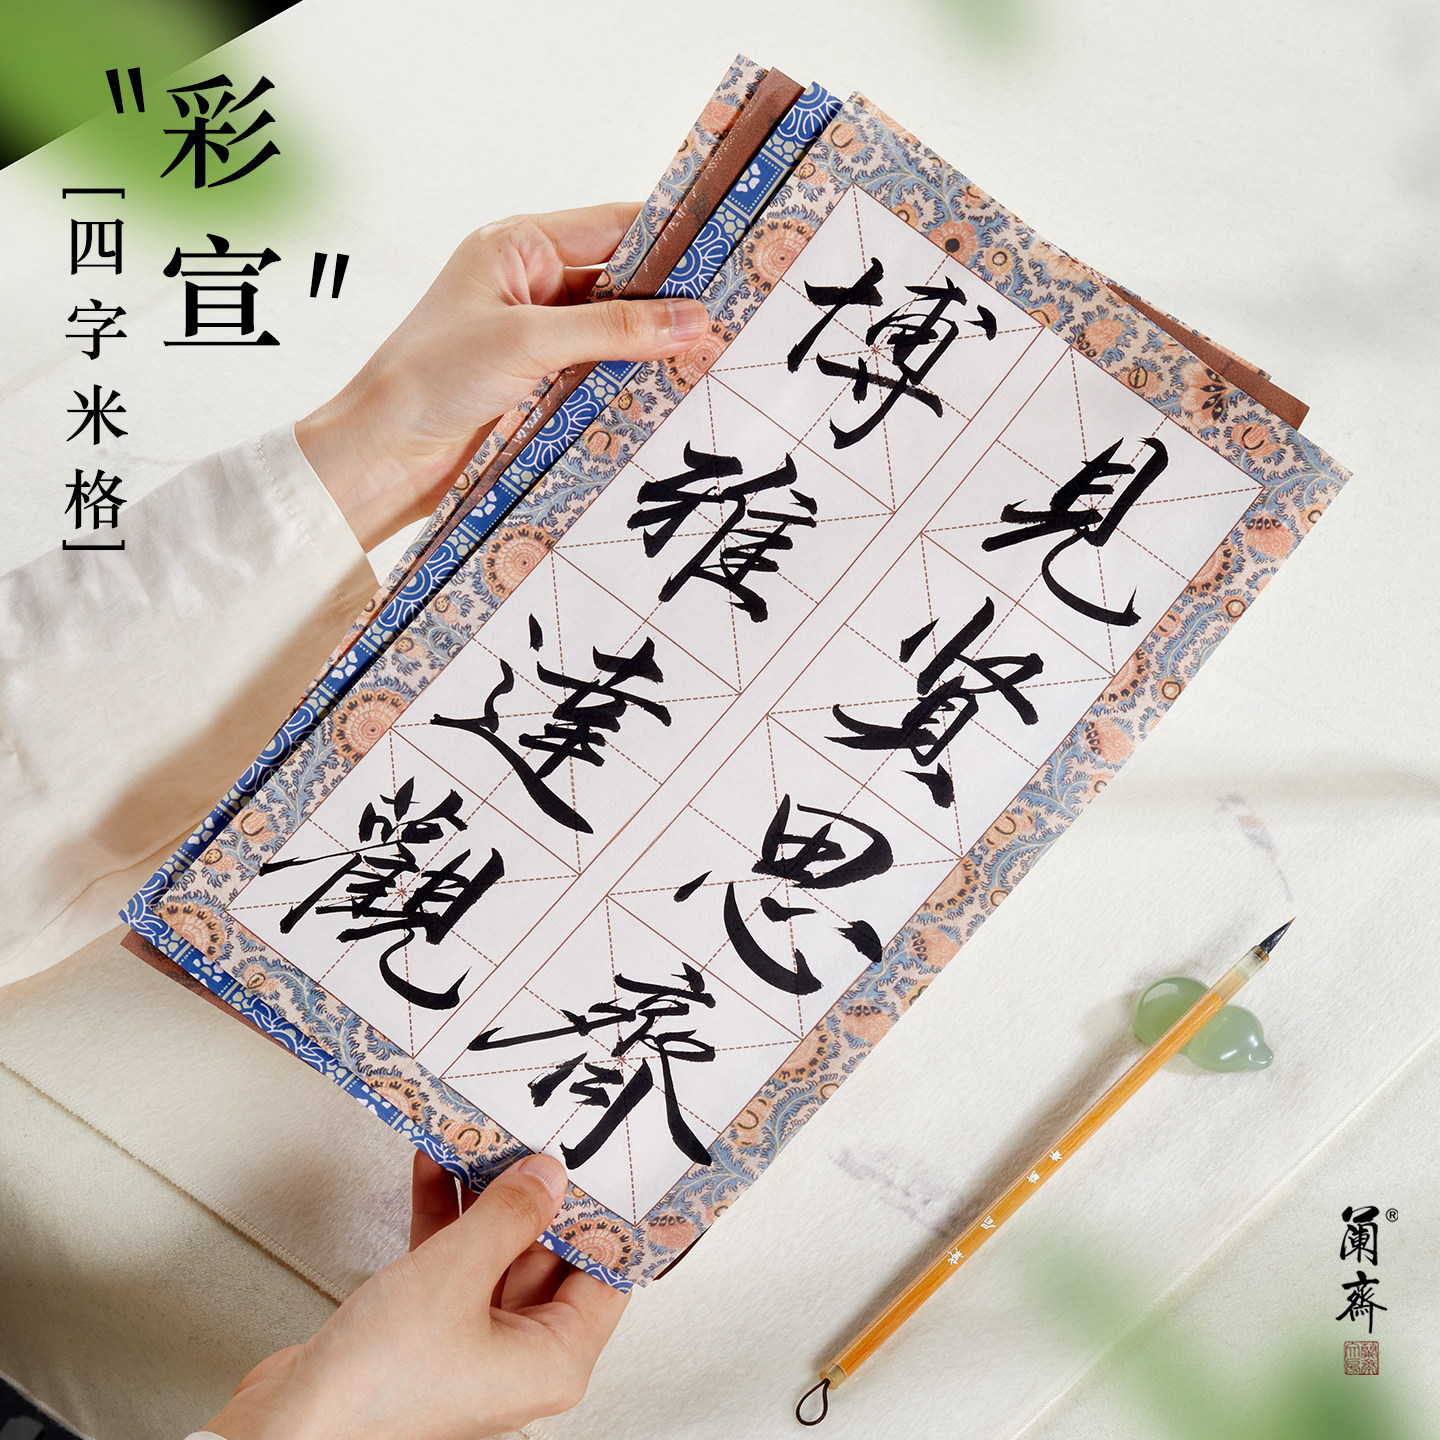 "彩宣"
[四字米格]
見賢思齊
博雅達觀
阑齋®